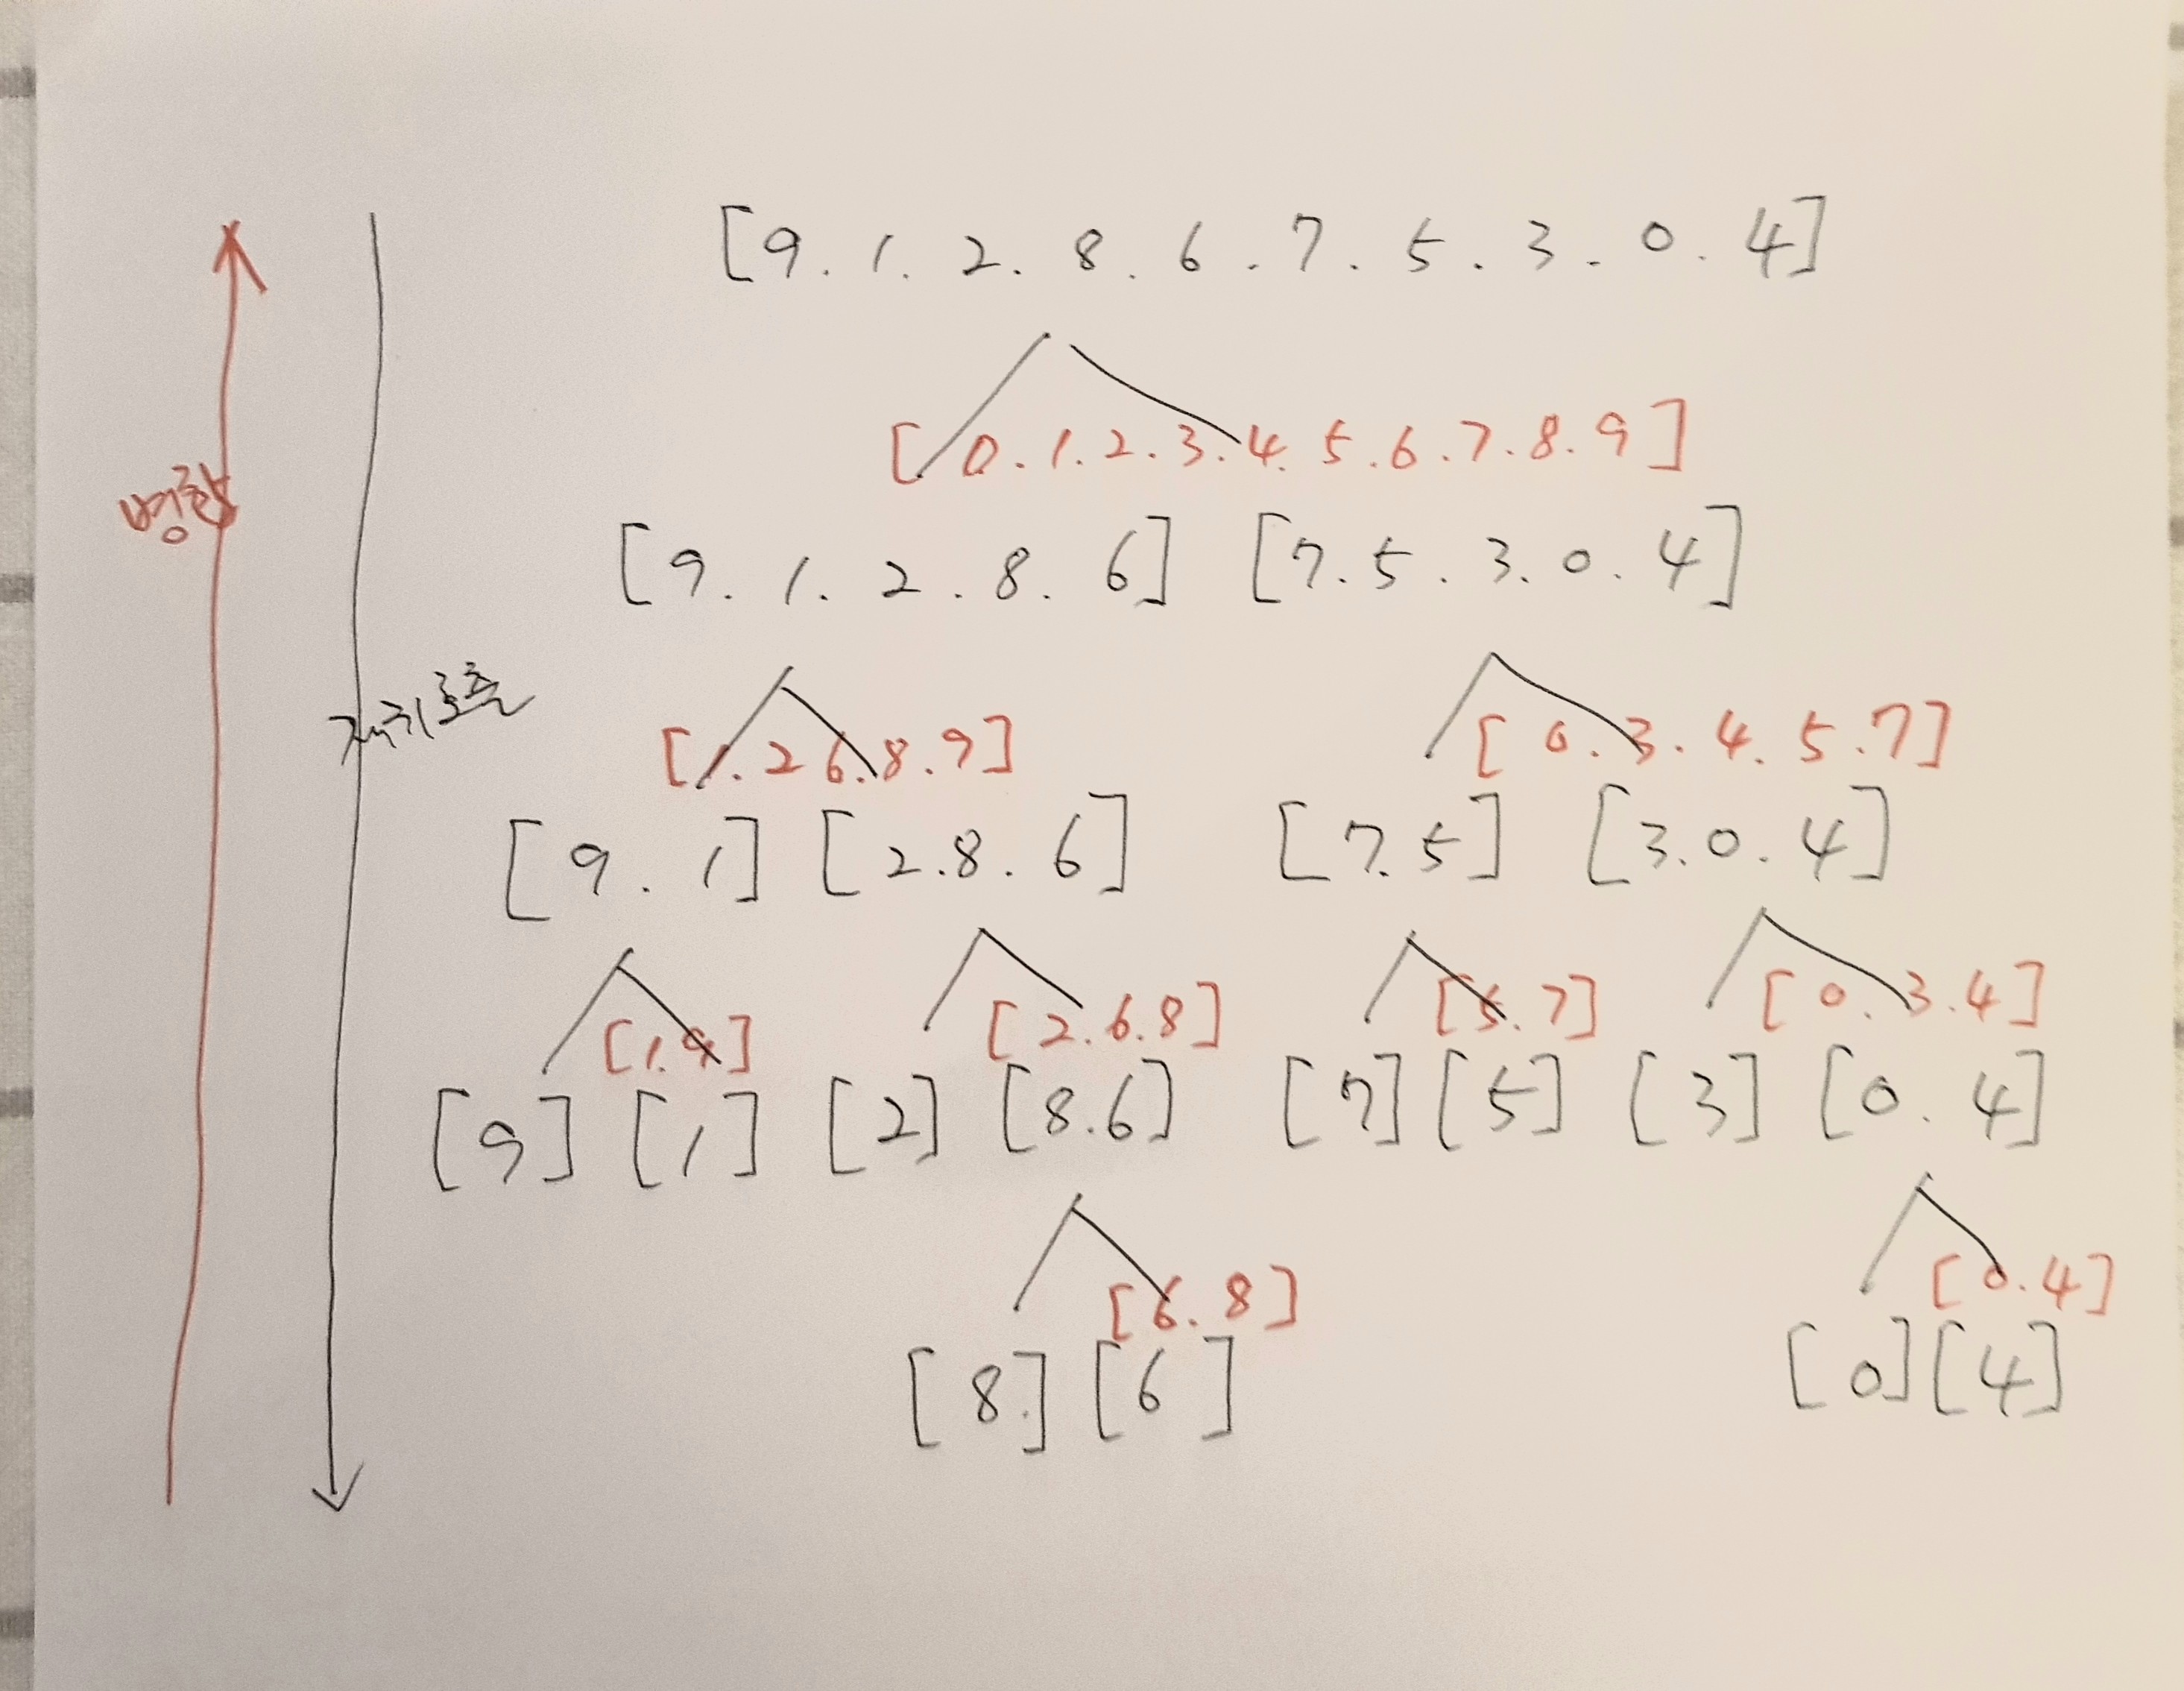 [9. 1. 2. 8. 6. 7. 5. 3. 0. 4]
[0. 1. 2. 3. 4. 5. 6. 7. 8. 9]
병합
[9. 1. 2. 8. 6] [7. 5. 3. 0. 4]
재귀호출
[1. 2 6. 8. 9] [0. 3. 4. 5. 7]
[9. 1] [2. 8. 6] [7. 5] [3. 0. 4]
[1. 9] [2. 6. 8] [5. 7] [0. 3. 4]
[9] [1] [2] [8. 6] [7] [5] [3] [0. 4]
[6. 8] [0. 4]
[8] [6] [0] [4]